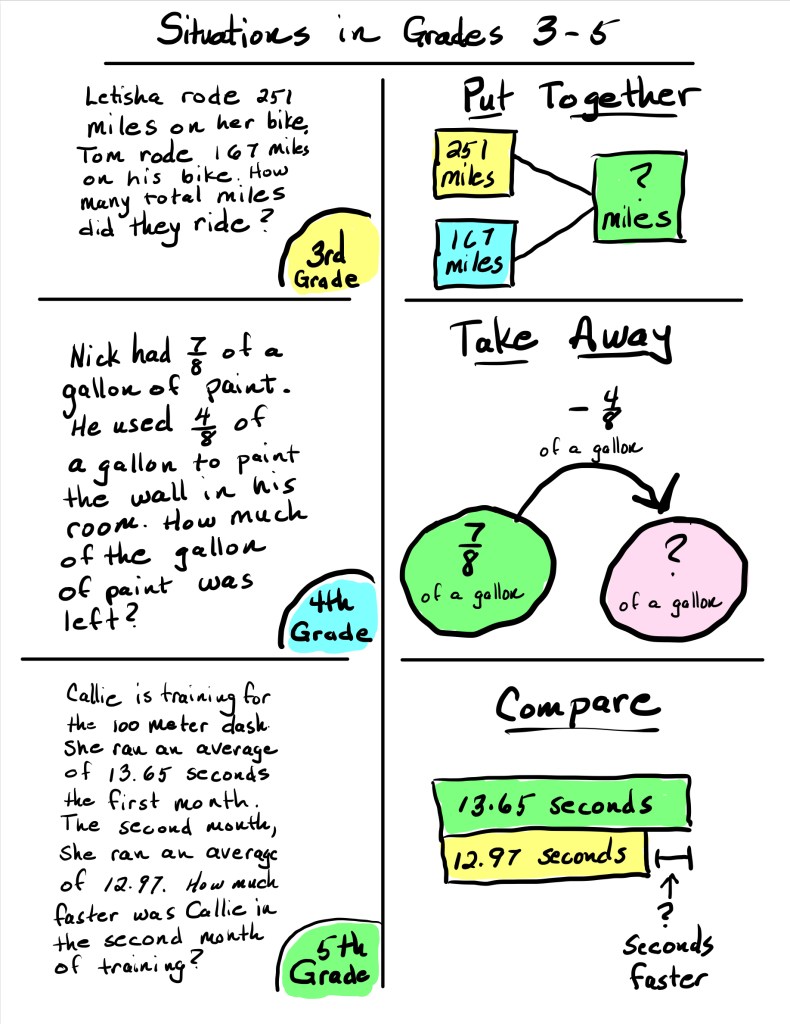 Situations in Grades 3-5
Letisha rode 251
miles on her bike.
Tom rode 167 miles
on his bike. How
many total miles
did they ride?
3rd
Grade
Put Together
251
miles
167
miles
?
miles
Nick had 7/8 of a
gallon of paint.
He used 4/8 of
a gallon to paint
the wall in his
room. How much
of the gallon
of paint was
left?
4th
Grade
Take Away
- 4/8
of a gallon
7/8
of a gallon
?
of a gallon
Callie is training for
the 100 meter dash.
She ran an average
of 13.65 seconds
the first month.
The second month,
she ran an average
of 12.97. How much
faster was Callie in
the second month
of training?
5th
Grade
Compare
13.65 seconds
12.97 seconds
?
Seconds
faster